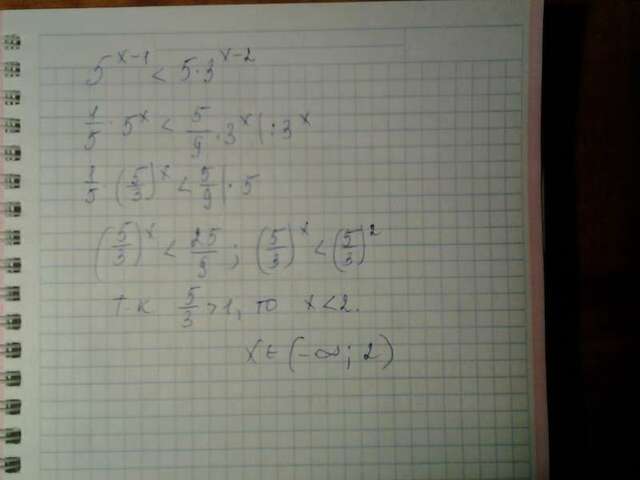 5^{x-1} < 5·3^{x-2}
1/5 · 5^x < 5/9 · 3^x | : 3^x
1/5 · (5/3)^x < 5/9 | · 5
(5/3)^x < 25/9 ; (5/3)^x < (5/3)^2
т.к 5/3 > 1, то x < 2.
x ∈ (-∞; 2)